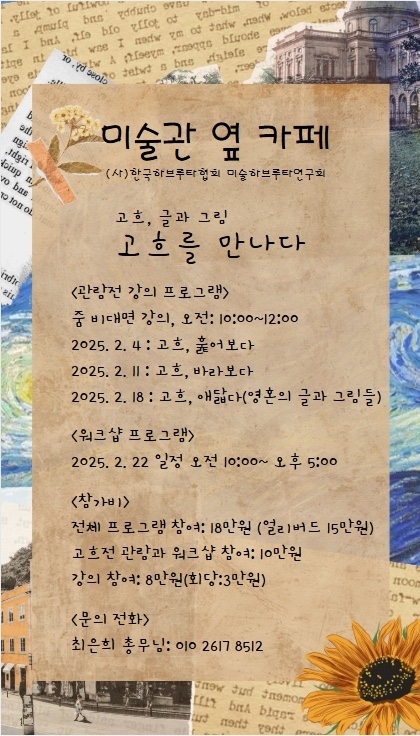 미술관 옆 카페
(사)한국하브루타협회 미술하브루타연구회
고흐, 글과 그림
고흐를 만나다
<관람전 강의 프로그램>
줌 비대면 강의, 오전: 10:00~12:00
2025. 2. 4 : 고흐, 훑어보다
2025. 2. 11 : 고흐, 바라보다
2025. 2. 18 : 고흐, 애닯다(영혼의 글과 그림들)
<워크샵 프로그램>
2025. 2. 22 일정 오전 10:00~ 오후 5:00
<참가비>
전체 프로그램 참여: 18만원 (얼리버드 15만원)
고흐전 관람과 워크샵 참여: 10만원
강의 참여: 8만원(회당:3만원)
<문의 전화>
최은희 총무님: 010 2617 8512